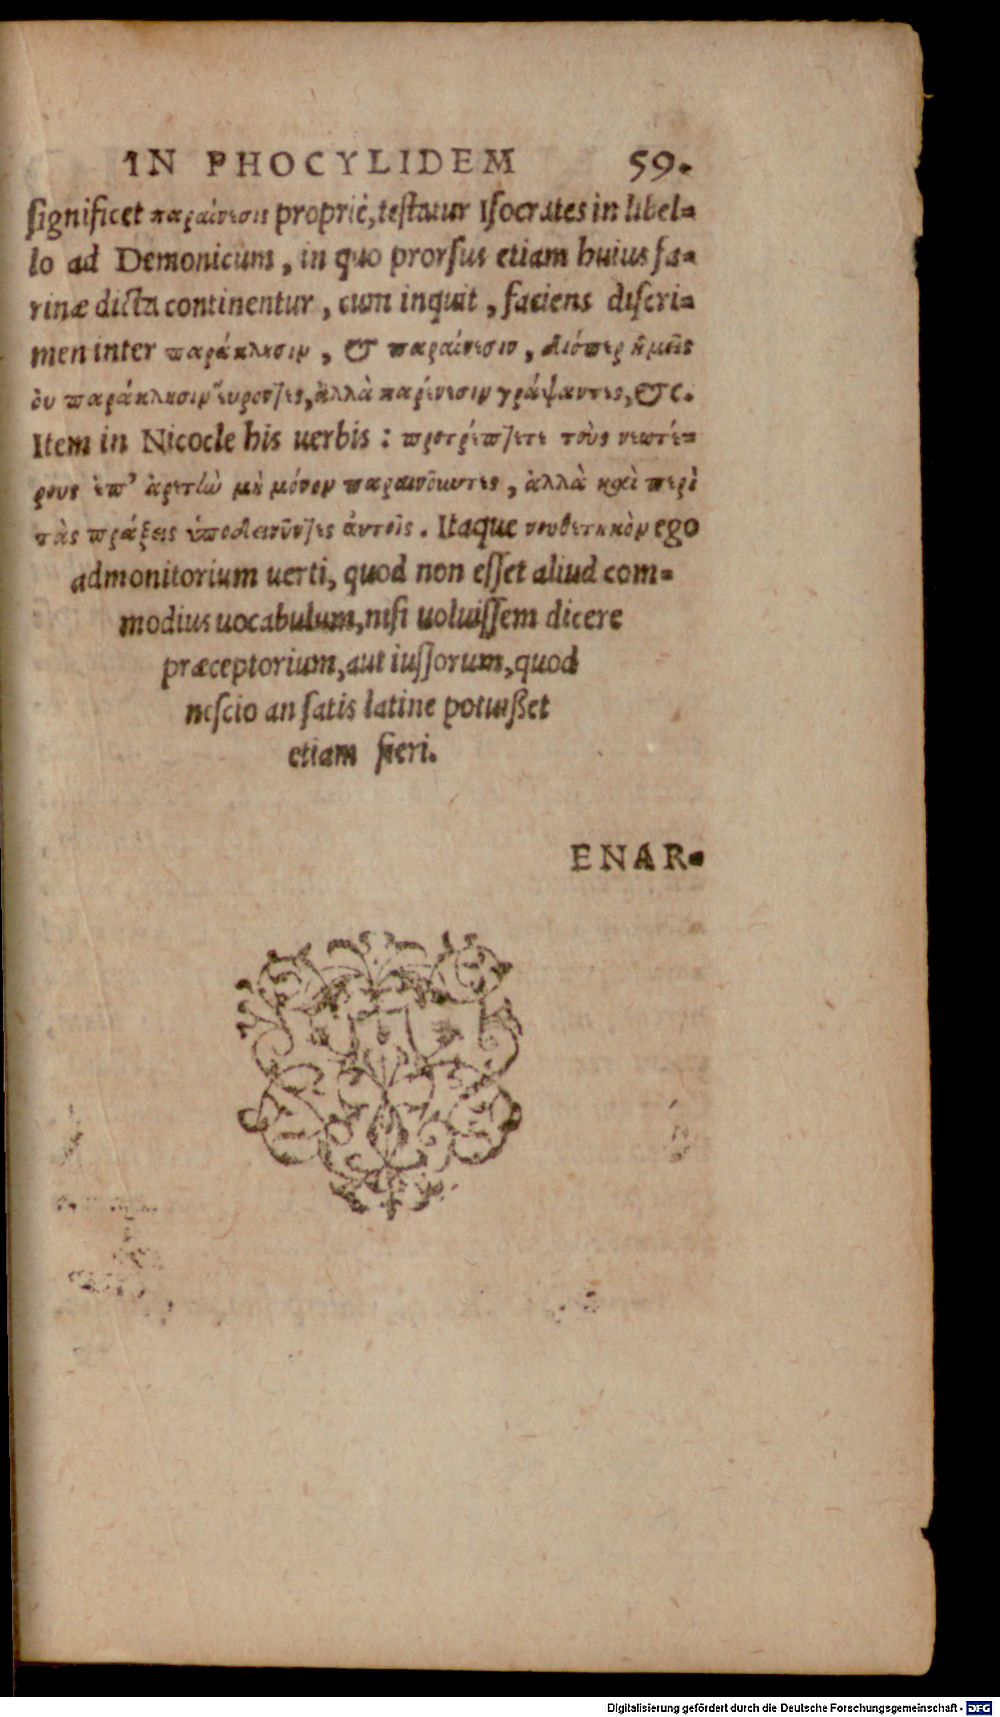 IN PHOCYLIDEM 59.
ſignificet παραίνεσις propriè, teſtatur Iſocrates in libel=
lo ad Demonicum, in quo prorſus etiam huius fa=
rinæ dicta continentur, cum inquit, faciens diſcri=
men inter παράκλησιν, & παραίνεσιν, διόπερ ἡμεῖς
ὀυ παράκλησιν ἕυροντες, ἀλλὰ παρίνεσιν γράψαντες, &c.
Item in Nicocle his uerbis: προτρέπετε τοὺς νεωτέ=
ρους ἐπ' ἀρετὼ μὴ μόνον παραινοῦντες, ἀλλὰ καὶ περὶ
τὰς πράξεις ὑποδεικνῦντες ἀυτοῖς. Itaque νουθετικὸν ego
admonitorium uerti, quod non eſſet aliud com=
modius uocabulum, niſi uoluiſſem dicere
præceptorium, aut iuſſorum, quod
neſcio an ſatis latine potuißet
etiam fieri.
ENAR=
Digitalisierung gefördert durch die Deutsche Forschungsgemeinschaft - DFG